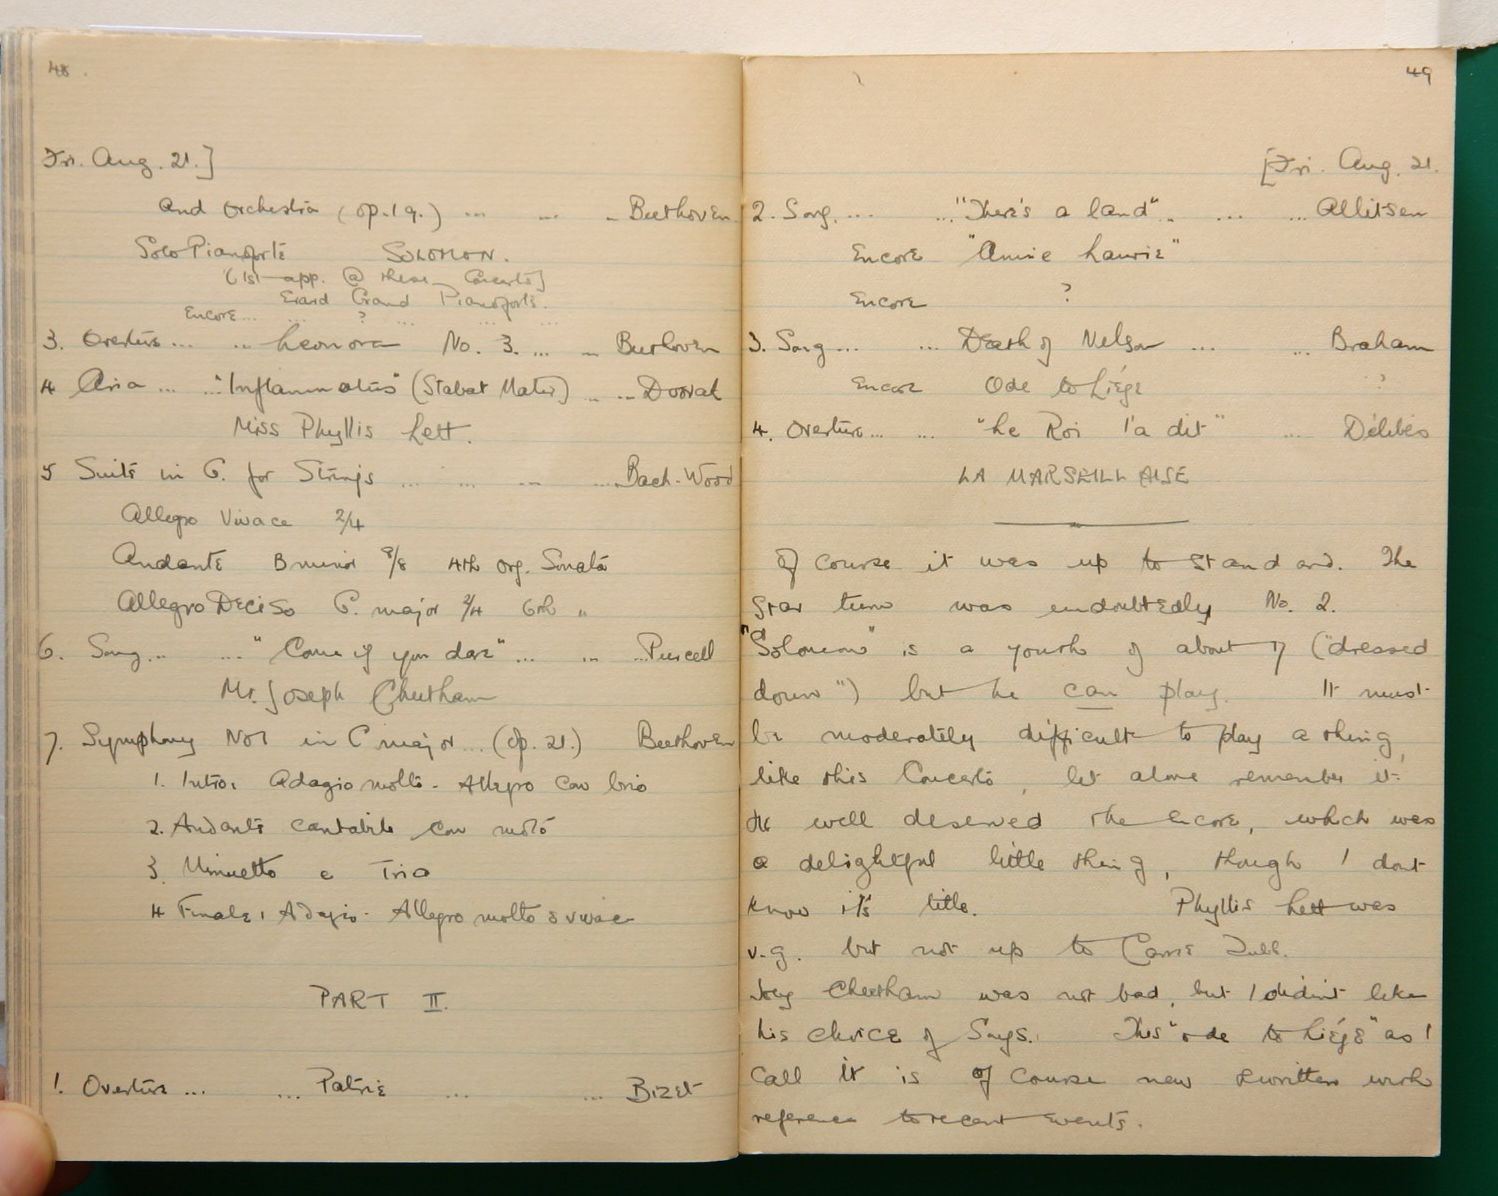 48.
Fri. Aug. 21.]
and Orchestra (op. 19.) ... ... .. Beethoven
Solo Pianoforte SOLOMON.
(1st app. @ these Concerts]
Erard Grand Pianoforte.
Encore... ... ? ... ... ...
3. Overture... .. Leonora No. 3. ... .. Beethoven
4 Aria ... ..."Inflammatus" (Stabat Mater) .. ... Dvorak
Miss Phyllis Lett.
5 Suite in G. for Strings ... ... ... ... Bach-Wood
Allegro Vivace 2/4
Andante B minor 9/8 4th Org. Sonata
Allegro Deciso G. major 2/4 6th "
6. Song... ..."Come if you dare"... ... ...Purcell
Mr. Joseph Cheetham
7. Symphony No 1 in C major... (op. 21.) Beethoven
1. Intro: Adagio molto - Allegro con brio
2. Andante cantabile con moto
3. Minuetto e Trio
4 Finale: Adagio - Allegro molto e vivace
PART II.
1. Overture ... ... Patrie ... ... Bizet
49
[Fri. Aug. 21.
2. Song.... ..."There's a land".. ... ...Allitsen
Encore "Annie Laurie"
Encore ?
3. Song... ... Death of Nelson ... ... Braham
Encore Ode to Liége ?
4. Overture... ... "Le Roi l'a dit" ... Délibes
LA MARSEILLAISE
Of course it was up to standard. The
star turn was undoubtedly No. 2.
"Solomon" is a youth of about 17 ("dressed
down") but he can play. It must
be moderately difficult to play a thing
like this Concerto, let alone remember it.
He well deserved the encore, which was
a delightful little thing, though I dont
know it's title. Phyllis Lett was
v.g. but not up to Carrie Tubb.
Joey Cheetham was not bad, but I didn't like
his choice of Songs. This "ode to Liége" as I
call it is of course new & written with
reference to recent events.